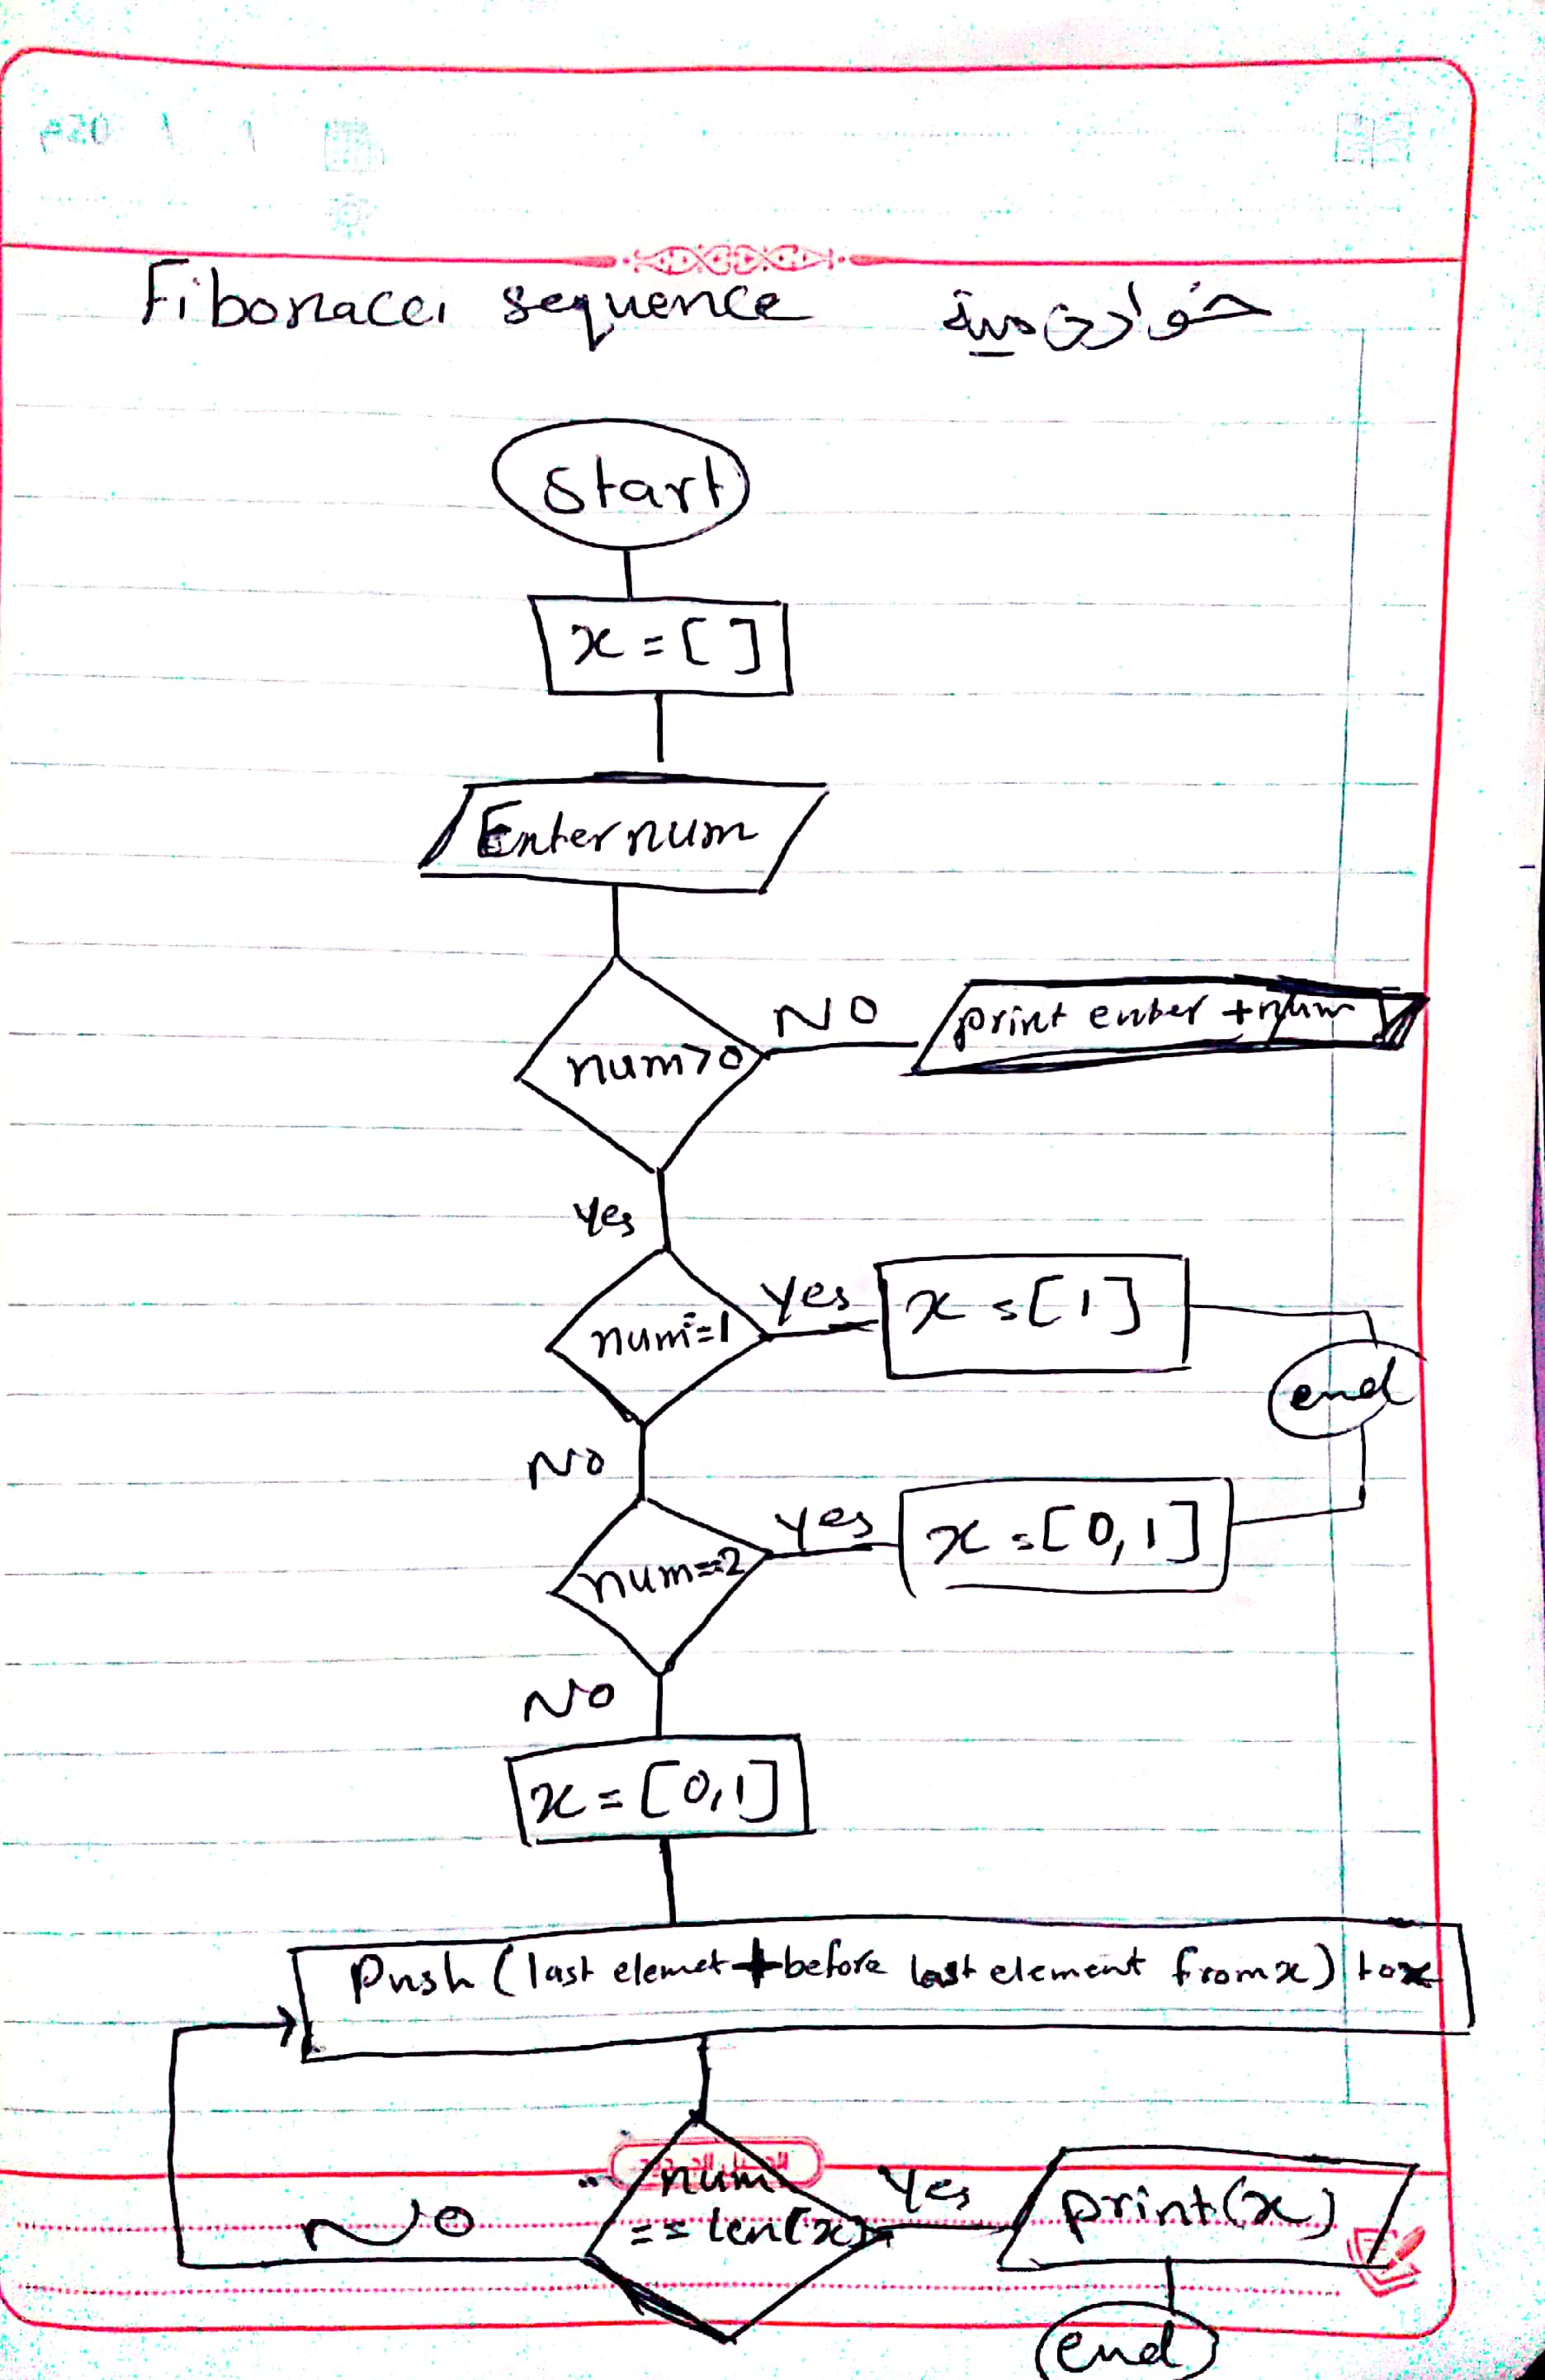 Fibonacci sequence خوارزمية
Start
x = [ ]
Enter num
num>0
NO
print enter +num
Yes
num==1
Yes
x = [1]
end
No
num==2
Yes
x = [0,1]
No
x = [0,1]
Push (last elemet + before last element from x) to x
num
== len(x)
Yes
print(x)
No
end